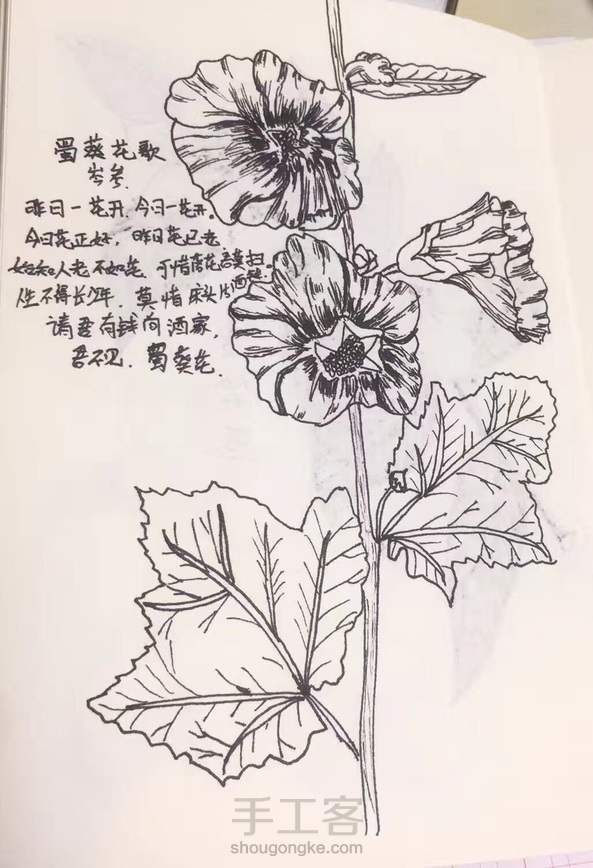 蜀葵花歌
岑参.
昨日一花开、今日一花开。
今日花正好, 昨日花已老
始知人老不如花、可惜落花君莫扫.
人生不得长少年、莫惜床头沽酒钱.
请君有钱向酒家,
君不见、蜀葵花.
手工客
shougongke.com